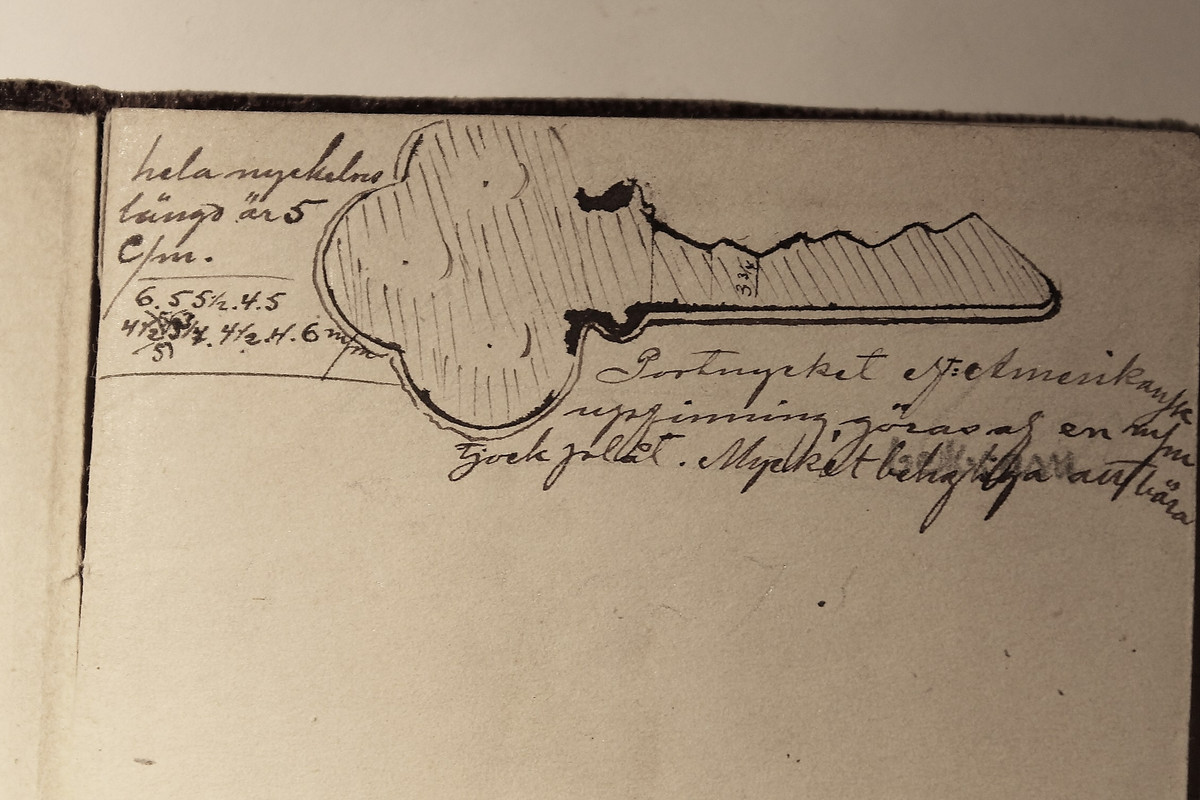 hela nyckelns
längd är 5
C/m.
6.5 5½.4.5
4½ . 4½.4.6 m/m
3¾
Portnyckel Amerikansk
uppfinning, göras af en m/m
tjock plåt. Mycket behagliga att bära